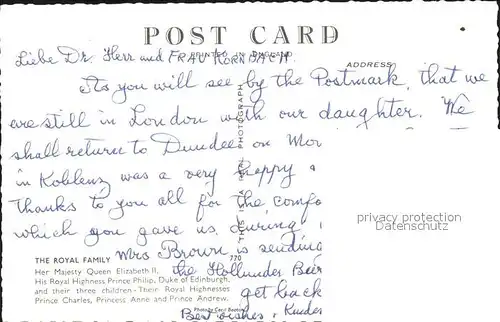 POST CARD
PRINTED IN ENGLAND
Liebe Dr. Herr and FRAU KORNBACH
ADDRESS
As you will see by the Postmark, that we
are still in London with our daughter. We
shall return to Dundee on Mon
in Koblenz was a very happy a
Thanks to you all for the comfo
which you gave us during
THIS IS A REAL PHOTOGRAPH
privacy protection
Datenschutz
Mrs Brown is sending
THE ROYAL FAMILY 770
the Hollunder Beer
Her Majesty Queen Elizabeth II,
His Royal Highness Prince Philip, Duke of Edinburgh,
and their three children - Their Royal Highnesses
Prince Charles, Princess Anne and Prince Andrew.
get back
Photo by Cecil Beaton
Best wishes,